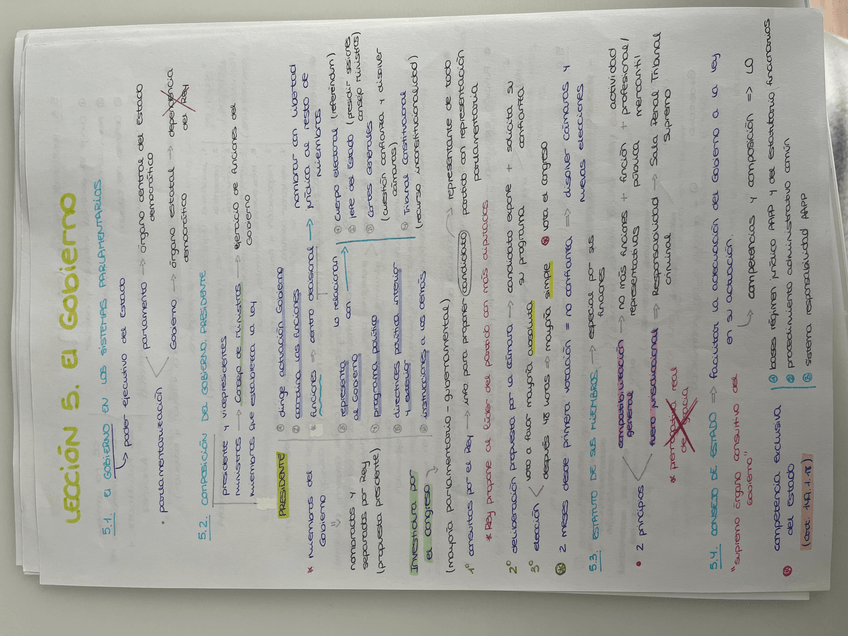 LECCIÓN 5. El Gobierno
5.1. El GOBIERNO EN LOS SISTEMAS PARLAMENTARIOS
poder ejecutivo del Estado
• parlamentarización
parlamento → órgano central del Estado
democrático
Gobierno → órgano estatal → dependencia
democrático del Rey
5.2. COMPOSICIÓN DEL GOBIERNO. PRESIDENTE
presidente y vicepresidentes
ministros → Consejo de ministros → ejercicio de funciones del
Gobierno
miembros que establezca la ley
* miembros del
Gobierno
nombrados y
separados por Rey
(propuesta presidente)
PRESIDENTE
① dirige actuación Gobierno
② coordina las funciones
funciones → centro decisional → nombrar con libertad
jurídica al resto de
miembros
③ representa
al Gobierno
④ programa político
⑤ directrices política interior
y exterior
⑥ instrucciones a los demás
lo relacionan
con →
① cuerpo electoral (referéndum)
② jefe del Estado (presidir sesiones
consejo ministros)
③ Cortes Generales
(cuestión confianza y disolver
cámaras)
④ Tribunal Constitucional
(recurso inconstitucionalidad)
Investidura por
el congreso →
(mayoría parlamentaria - gubernamental)
1º consultas por el Rey → info para proponer candidato → representante de todo
partido con representación
parlamentaria
* Rey propone al líder del partido con más diputados
2º deliberación propuesta por la cámara → candidato expone + solicita su
su programa confianza
3º elección
voto a favor mayoría absoluta
después 48 horas → mayoría simple
* vota el congreso
2 meses desde primera votación = no confianza ⇒ disolver cámaras y
nuevas elecciones
5.3. ESTATUTO DE SUS MIEMBROS → especial por sus
funciones
• 2 principios
compatibilización → no más funciones + función + actividad
general representativas pública profesional/
mercantil
fuero jurisdiccional → Responsabilidad → Sala Penal Tribunal
criminal Supremo
* prerrogativa real
de gracia
5.4. CONSEJO DE ESTADO → facilitar la adecuación del Gobierno a la ley
en su actuación.
"supremo órgano consultivo del
Gobierno"
→ competencias y composición ⇒ LO
competencia exclusiva
del Estado
(art. 149.1.18)
① bases régimen jurídico AAPP y del estatutario funcionarios
② procedimiento administrativo común
③ sistema responsabilidad AAPP